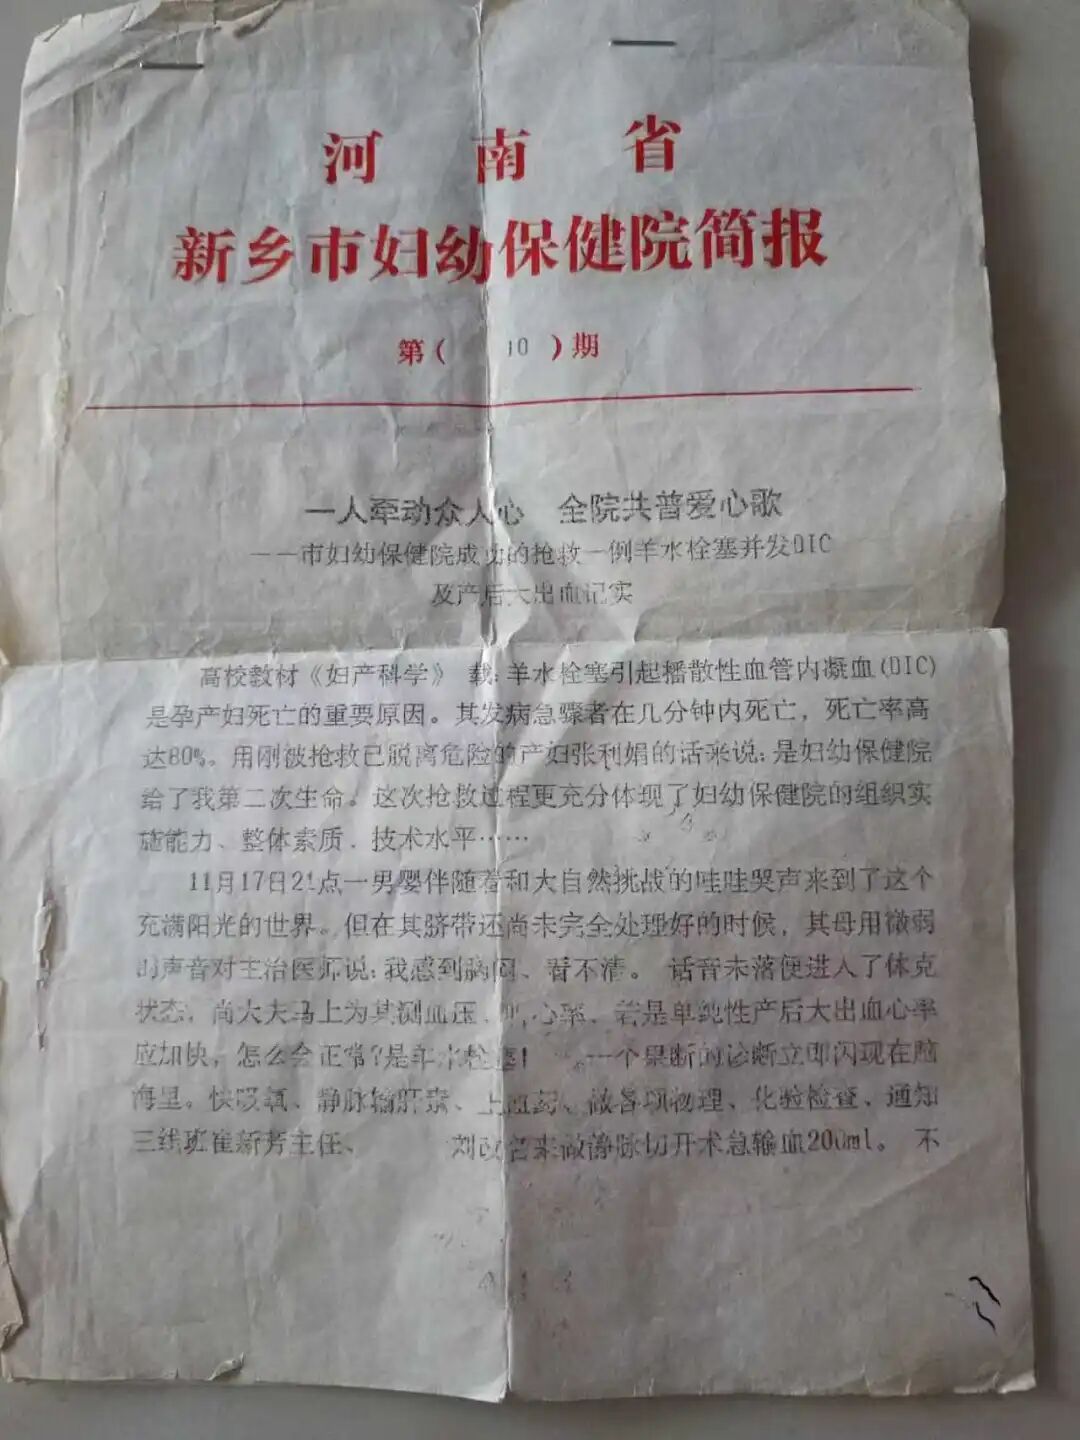 河南省
新乡市妇幼保健院简报
第( 10 )期
一人牵动众人心 全院共普爱心歌
——市妇幼保健院成功的抢救一例羊水栓塞并发DIC
及产后大出血记实
高校教材《妇产科学》 载:羊水栓塞引起播散性血管内凝血(DIC)
是孕产妇死亡的重要原因。其发病急骤者在几分钟内死亡，死亡率高
达80%。用刚被抢救已脱离危险的产妇张利娟的话来说:是妇幼保健院
给了我第二次生命。这次抢救过程更充分体现了妇幼保健院的组织实
施能力、整体素质、技术水平……
11月17日21点一男婴伴随着和大自然挑战的哇哇哭声来到了这个
充满阳光的世界。但在其脐带还尚未完全处理好的时候，其母用微弱
的声音对主治医师说:我感到胸闷、看不清。 话音未落便进入了休克
状态，尚大夫马上为其测血压、听心率、若是单纯性产后大出血心率
应加快，怎么会正常?是羊水栓塞! 一个果断的诊断立即闪现在脑
海里。快吸氧、静脉输肝素、上血药、做各项物理、化验检查、通知
三线班崔新芳主任、 刘改 来做静脉切开术急输血200ml。 不